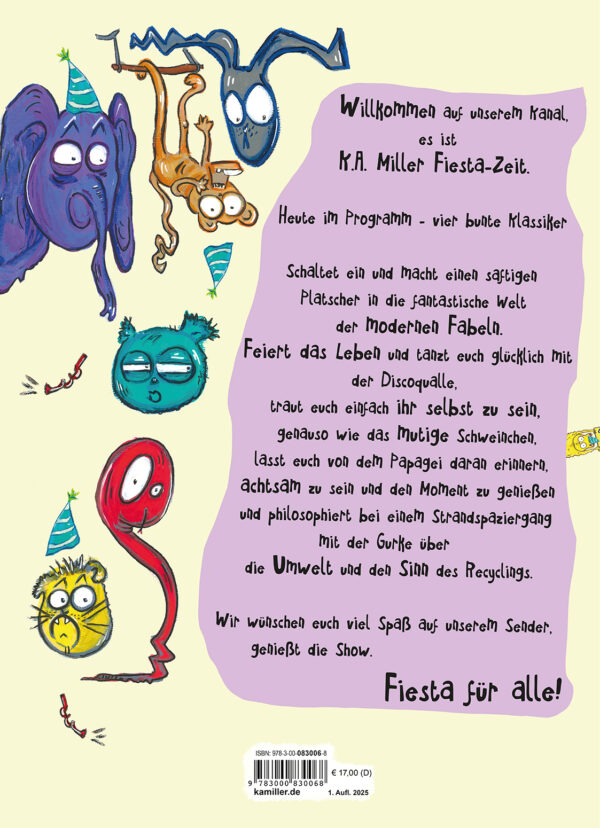 Willkommen auf unserem Kanal,
es ist
K.A. Miller Fiesta-Zeit.
Heute im Programm - vier bunte Klassiker
Schaltet ein und macht einen saftigen
Platscher in die fantastische Welt
der modernen Fabeln.
Feiert das Leben und tanzt euch glücklich mit
der Discoqualle,
traut euch einfach ihr selbst zu sein,
genauso wie das mutige Schweinchen,
lasst euch von dem Papagei daran erinnern,
achtsam zu sein und den Moment zu genießen
und philosophiert bei einem Strandspaziergang
mit der Gurke über
die Umwelt und den Sinn des Recyclings.
Wir wünschen euch viel Spaß auf unserem Sender,
genießt die Show.
Fiesta für alle!
ISBN: 978-3-00-083006-8
€ 17,00 (D)
9 783000 830068
kamiller.de
1. Aufl. 2025